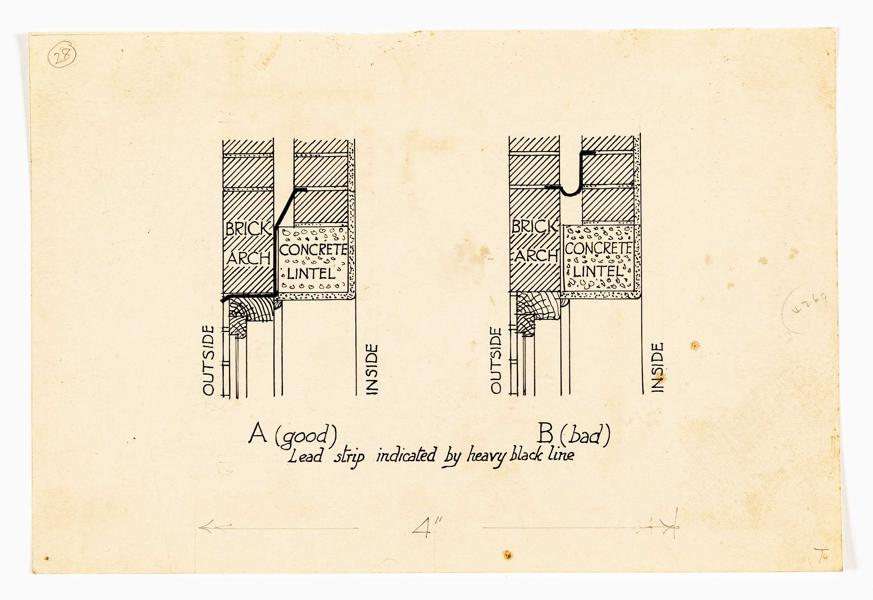 28
BRICK
ARCH
CONCRETE
LINTEL
OUTSIDE
INSIDE
BRICK
ARCH
CONCRETE
LINTEL
OUTSIDE
INSIDE
A (good)
B (bad)
Lead strip indicated by heavy black line
4"